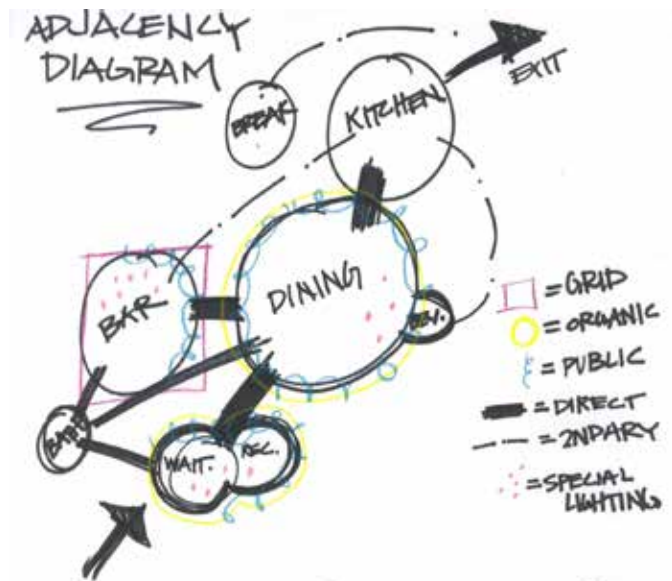 ADJACENCY
DIAGRAM
BREAK
KITCHEN
EXIT
BAR
DINING
BEV.
WAIT.
REC.
= GRID
= ORGANIC
= PUBLIC
= DIRECT
= 2NDARY
= SPECIAL
LIGHTING